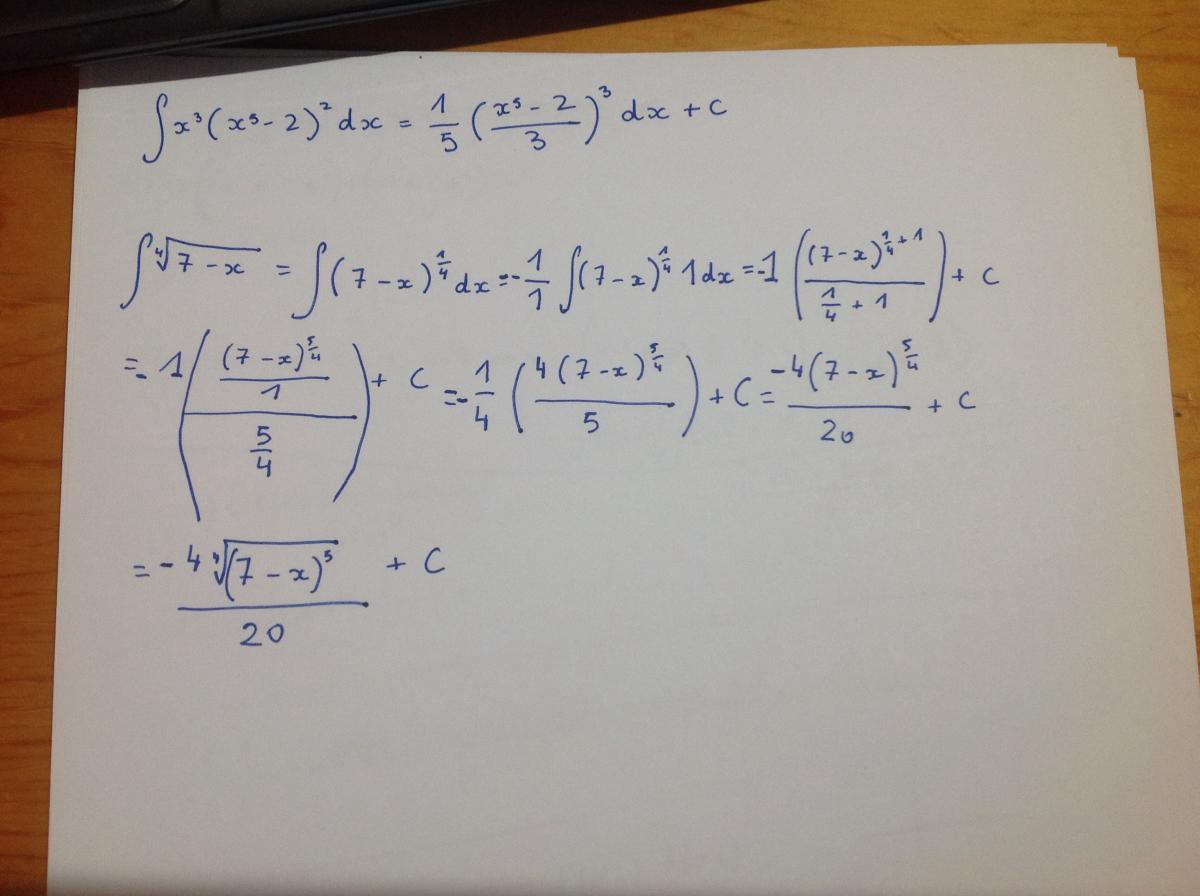 ∫ x³ (x⁵ - 2)² dx = 1/5 ((x⁵ - 2)/3)³ dx + C
∫ ⁴√(7 - x) = ∫ (7 - x)^(1/4) dx = -1/1 ∫ (7 - x)^(1/4) 1 dx = -1 ((7 - x)^(1/4 + 1) / (1/4 + 1)) + C
= -1 (((7 - x)^(5/4) / 1) / (5/4)) + C = -1/4 (4 (7 - x)^(5/4) / 5) + C = -4 (7 - x)^(5/4) / 20 + C
= -4 ⁴√((7 - x)⁵) / 20 + C